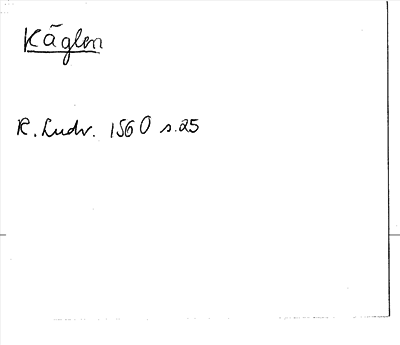 Käglen
R. Ludv. 1560 s.25